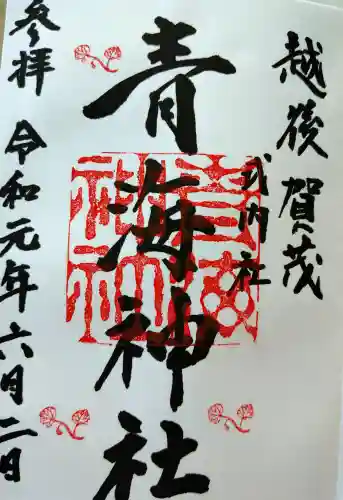 越後賀茂
式内社
青海神社
参拝
令和元年六月二日